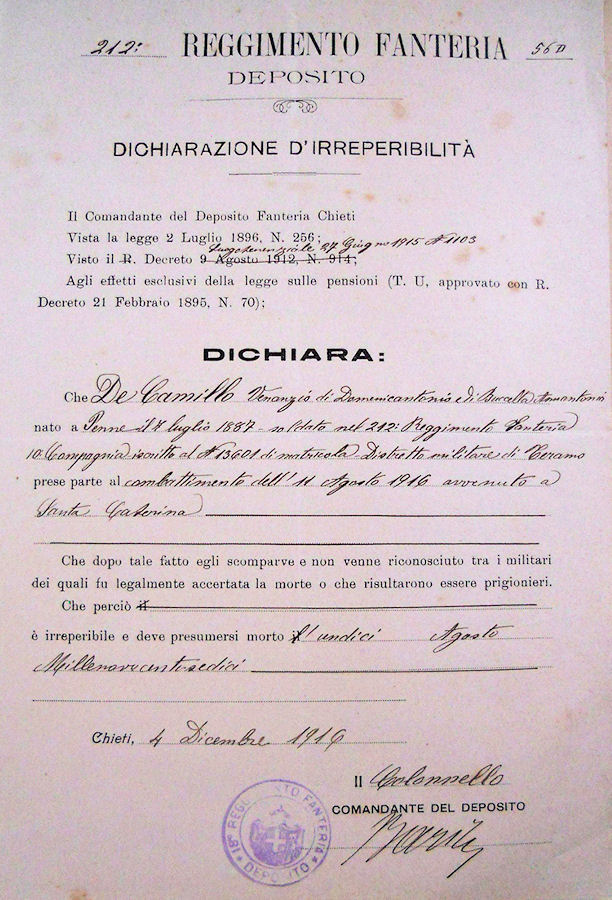 212° REGGIMENTO FANTERIA 56
DEPOSITO
DICHIARAZIONE D'IRREPERIBILITÀ
Il Comandante del Deposito Fanteria Chieti
Vista la legge 2 Luglio 1896, N. 256;
Luogotenenziale 27 Giugno 1915 N 1103
Visto il R. Decreto 9 Agosto 1912, N. 914;
Agli effetti esclusivi della legge sulle pensioni (T. U, approvato con R.
Decreto 21 Febbraio 1895, N. 70);
DICHIARA:
Che De Camillo Venanzio di Domenicantonio e di Bucalla
nato a Penne il 7 luglio 1887 - soldato nel 212° Reggimento Fanteria
10 Compagnia - iscritto al N 13601 di matricola - Distretto militare di Teramo
prese parte al combattimento dell'11 Agosto 1916 avvenuto a
Santa Caterina
Che dopo tale fatto egli scomparve e non venne riconosciuto tra i militari
dei quali fu legalmente accertata la morte o che risultarono essere prigionieri.
Che perciò il
è irreperibile e deve presumersi morto l'undici Agosto
Millenovecentosedici
Chieti, 4 Dicembre 1916
Il Colonnello
COMANDANTE DEL DEPOSITO
18° REGGIMENTO FANTERIA
DEPOSITO